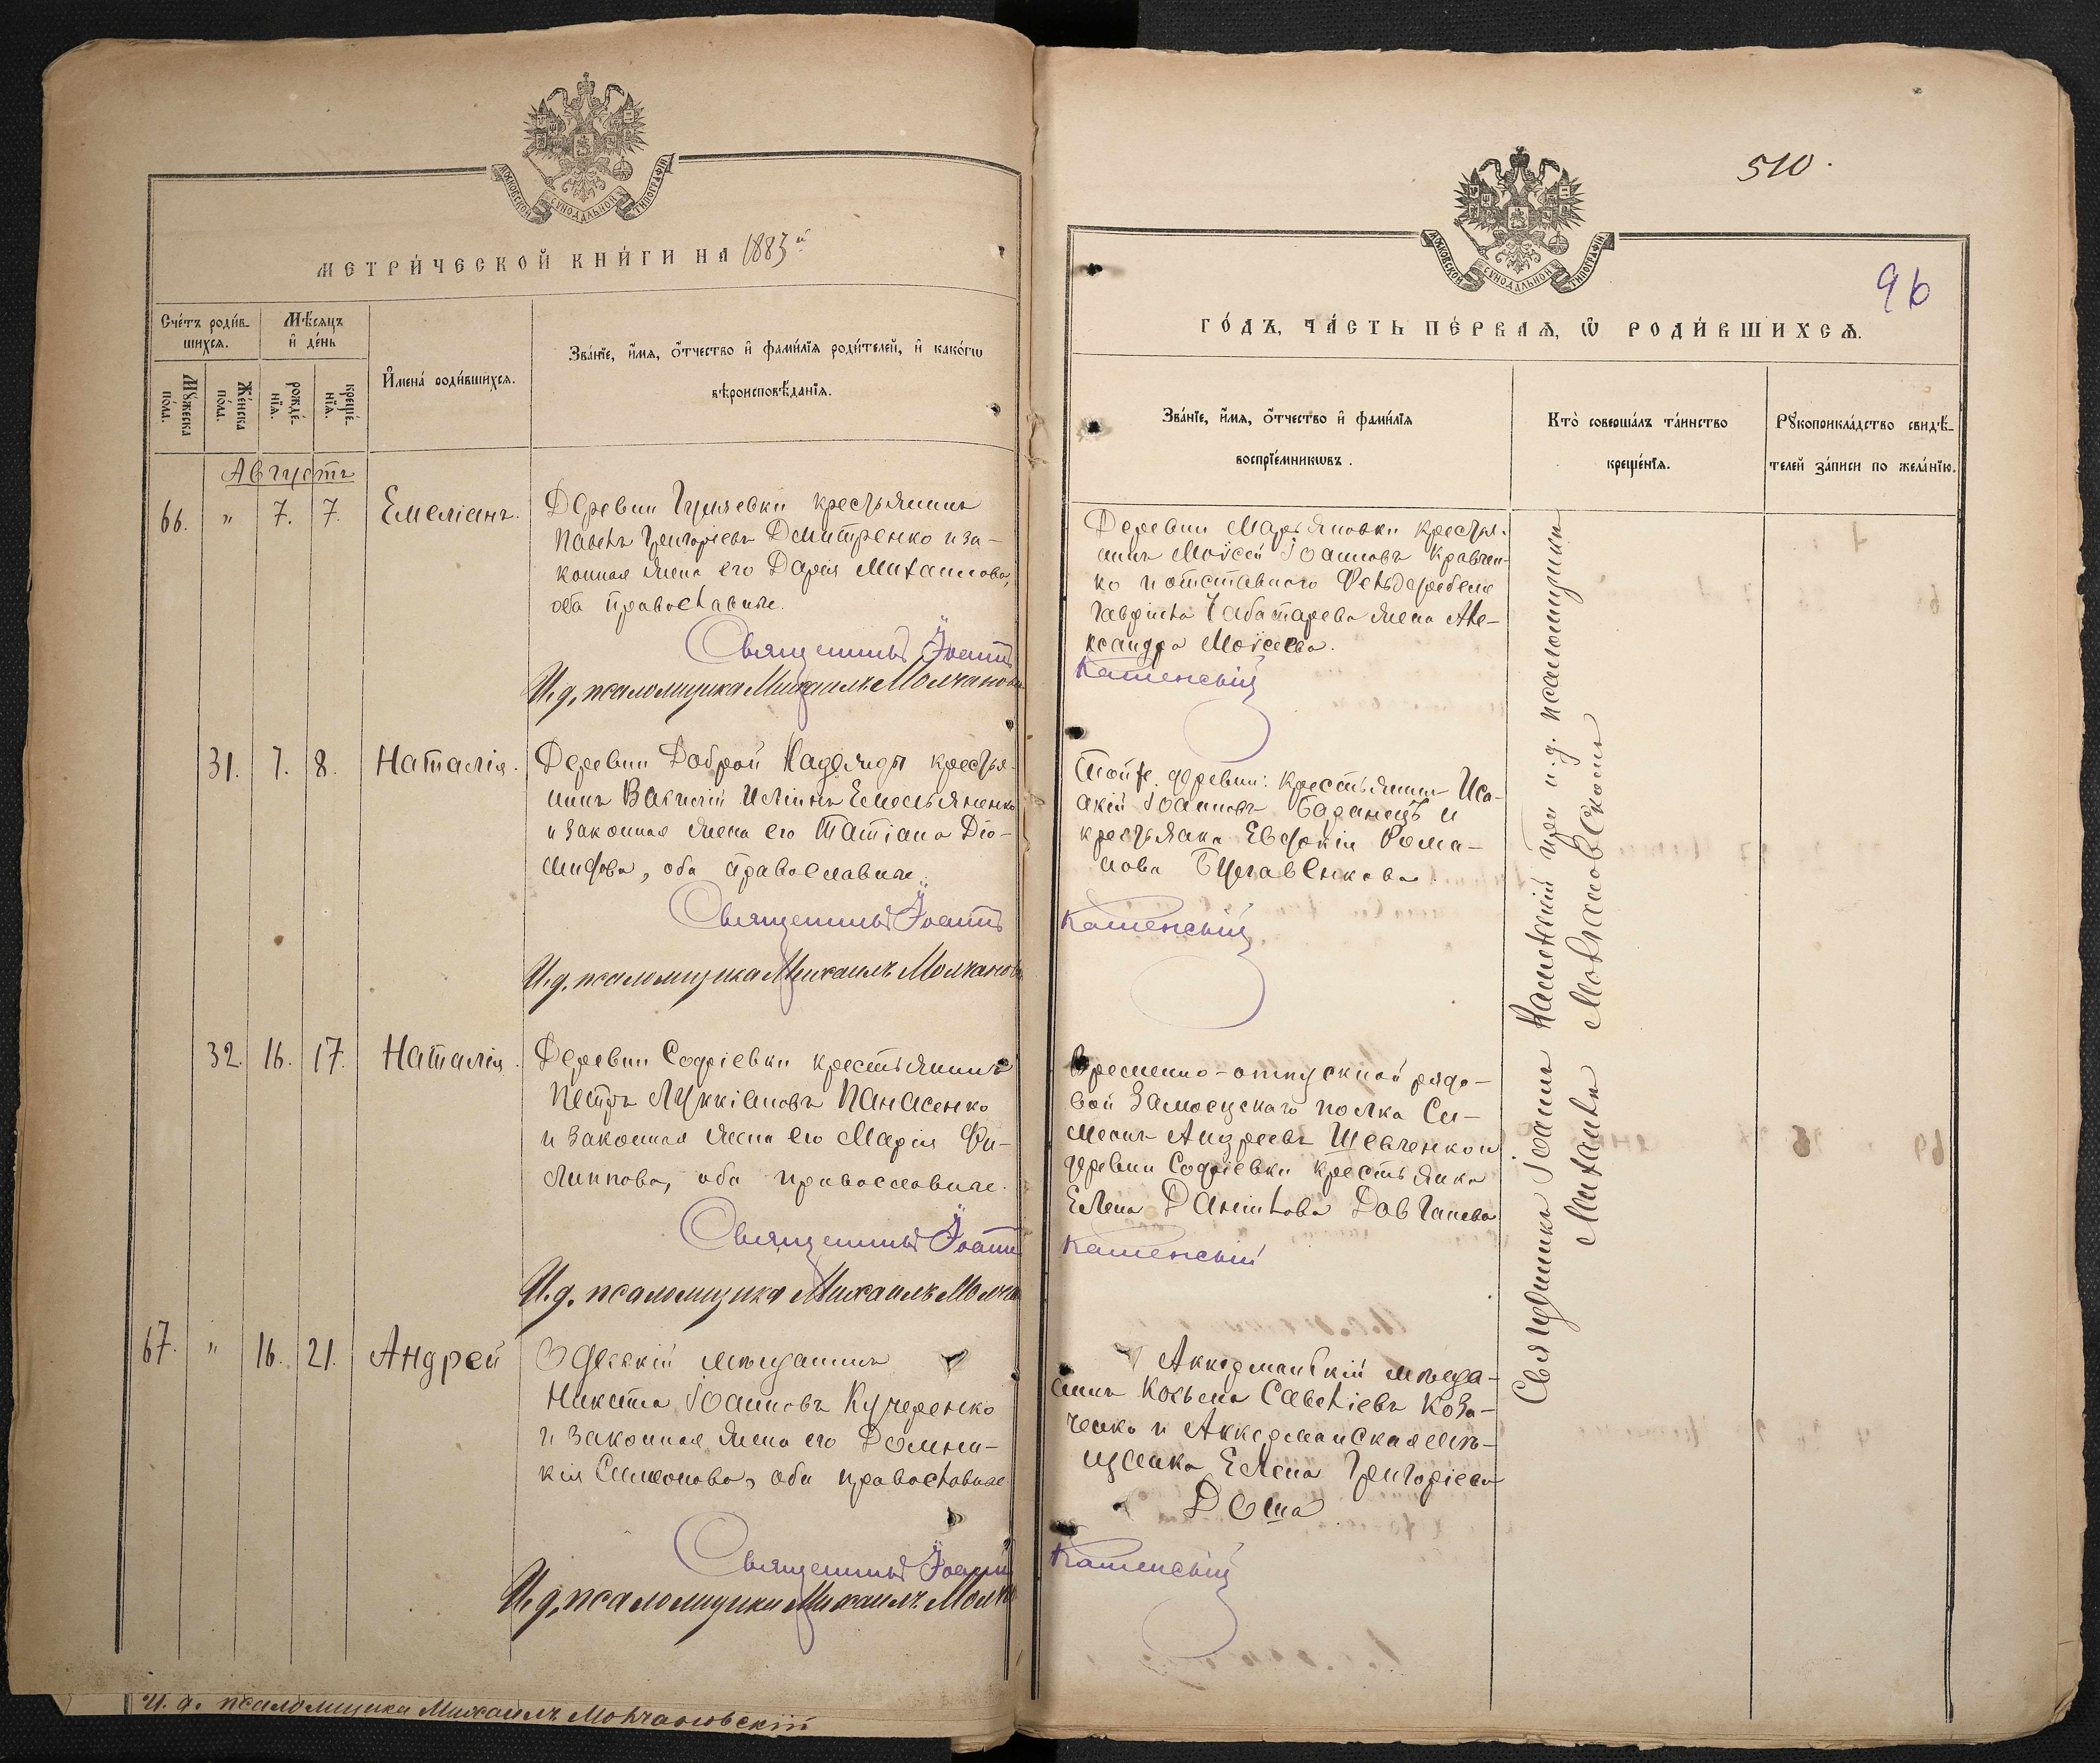 МОСКОВСКОЙ СѴНОДАЛЬНОЙ ТИПОГРАФІИ
МЕТРИ́ЧЕСКОЙ КНИ́ГИ НА 1883й
Сче́тъ роди́в-
шихся.
Мѣ́сяцъ
и҆ де́нь
Мꙋ́жеска
по́ла.
Же́нска
по́ла.
рожде́-
нїѧ.
креще́-
нїѧ.
И҆мена̀ роди́вшихсѧ.
Зва́нїе, и҆́мѧ, ѻ҆́тчество и҆ фами́лїѧ роди́телей, и҆ како́гѡ
вѣроисповѣ́данїѧ.
Августъ
66. " 7. 7. Емеліанъ.
Деревни Гуляевки крестьянинъ
Павелъ Григоріевъ Дмитренко и за-
конная жена его Дарія Михаилова,
оба православные.
Священникъ Іоаннъ
И.д. псаломщика Михаилъ Молчанов
31. 7. 8. Наталія.
Деревни Доброй Надежды крестья-
нинъ Василій Иліинъ Емельяненко
и законная жена его Татіана Діо-
мидова, оба православные.
Священникъ Іоаннъ
И.д. псаломщика Михаилъ Молчанов
32. 16. 17. Наталія.
Деревни Софіевки крестьянинъ
Петръ Лукіановъ Панасенко
и законная жена его Марія Фи-
липпова, оба православные.
Священникъ Іоаннъ
И.д. псаломщика Михаилъ Молча
67. " 16. 21. Андрей
Одесскій мѣщанинъ
Никита Іоанновъ Кучеренко
и законная жена его Домни-
кія Симеонова, оба православные
Священникъ Іоаннъ
И.д. псаломщика Михаилъ Молч
И. д. псаломщика Михаилъ Молчановскій
510.
МОСКОВСКОЙ СѴНОДАЛЬНОЙ ТИПОГРАФІИ
96
ГО́ДЪ, ЧА́СТЬ ПЕ́РВАѦ, Ѡ҆ РОДИ́ВШИХСѦ.
Зва́нїе, и҆́мѧ, ѻ҆́тчество и҆ фами́лїѧ
воспрїе́мникѡвъ.
Кто̀ соверша́лъ та́инство
креще́нїѧ.
Рꙋкоприкла́дство свидѣ́-
телей за́писи по жела́нїю.
Деревни Марьяновки крестья-
нинъ Моѵсей Іоанновъ Кравчен-
ко и отставного Фельдфебеля
Гавріила жена Але-
ксандра Моѵсеева.
Каменскій
Тойже деревни: крестьянинъ Иса-
акій Іоанновъ Баранецъ и
крестьянка Евфимія Рома-
нова
Каменскій
Временно-отпускной рядо-
вой Замосцскаго полка Си-
меонъ Андреевъ Шевченко и
деревни Софіевки крестьянка
Елена Даніилова Довганева
Каменскій
Аккерманскій мѣща-
нинъ Косьма Савеліевъ Коза-
ченко и Аккерманская мѣ-
щанка Елена Григоріева
Доша
Каменскій
Священникъ Іоаннъ Каменскій при и.д. псаломщика
Михаилѣ Молчановскомъ